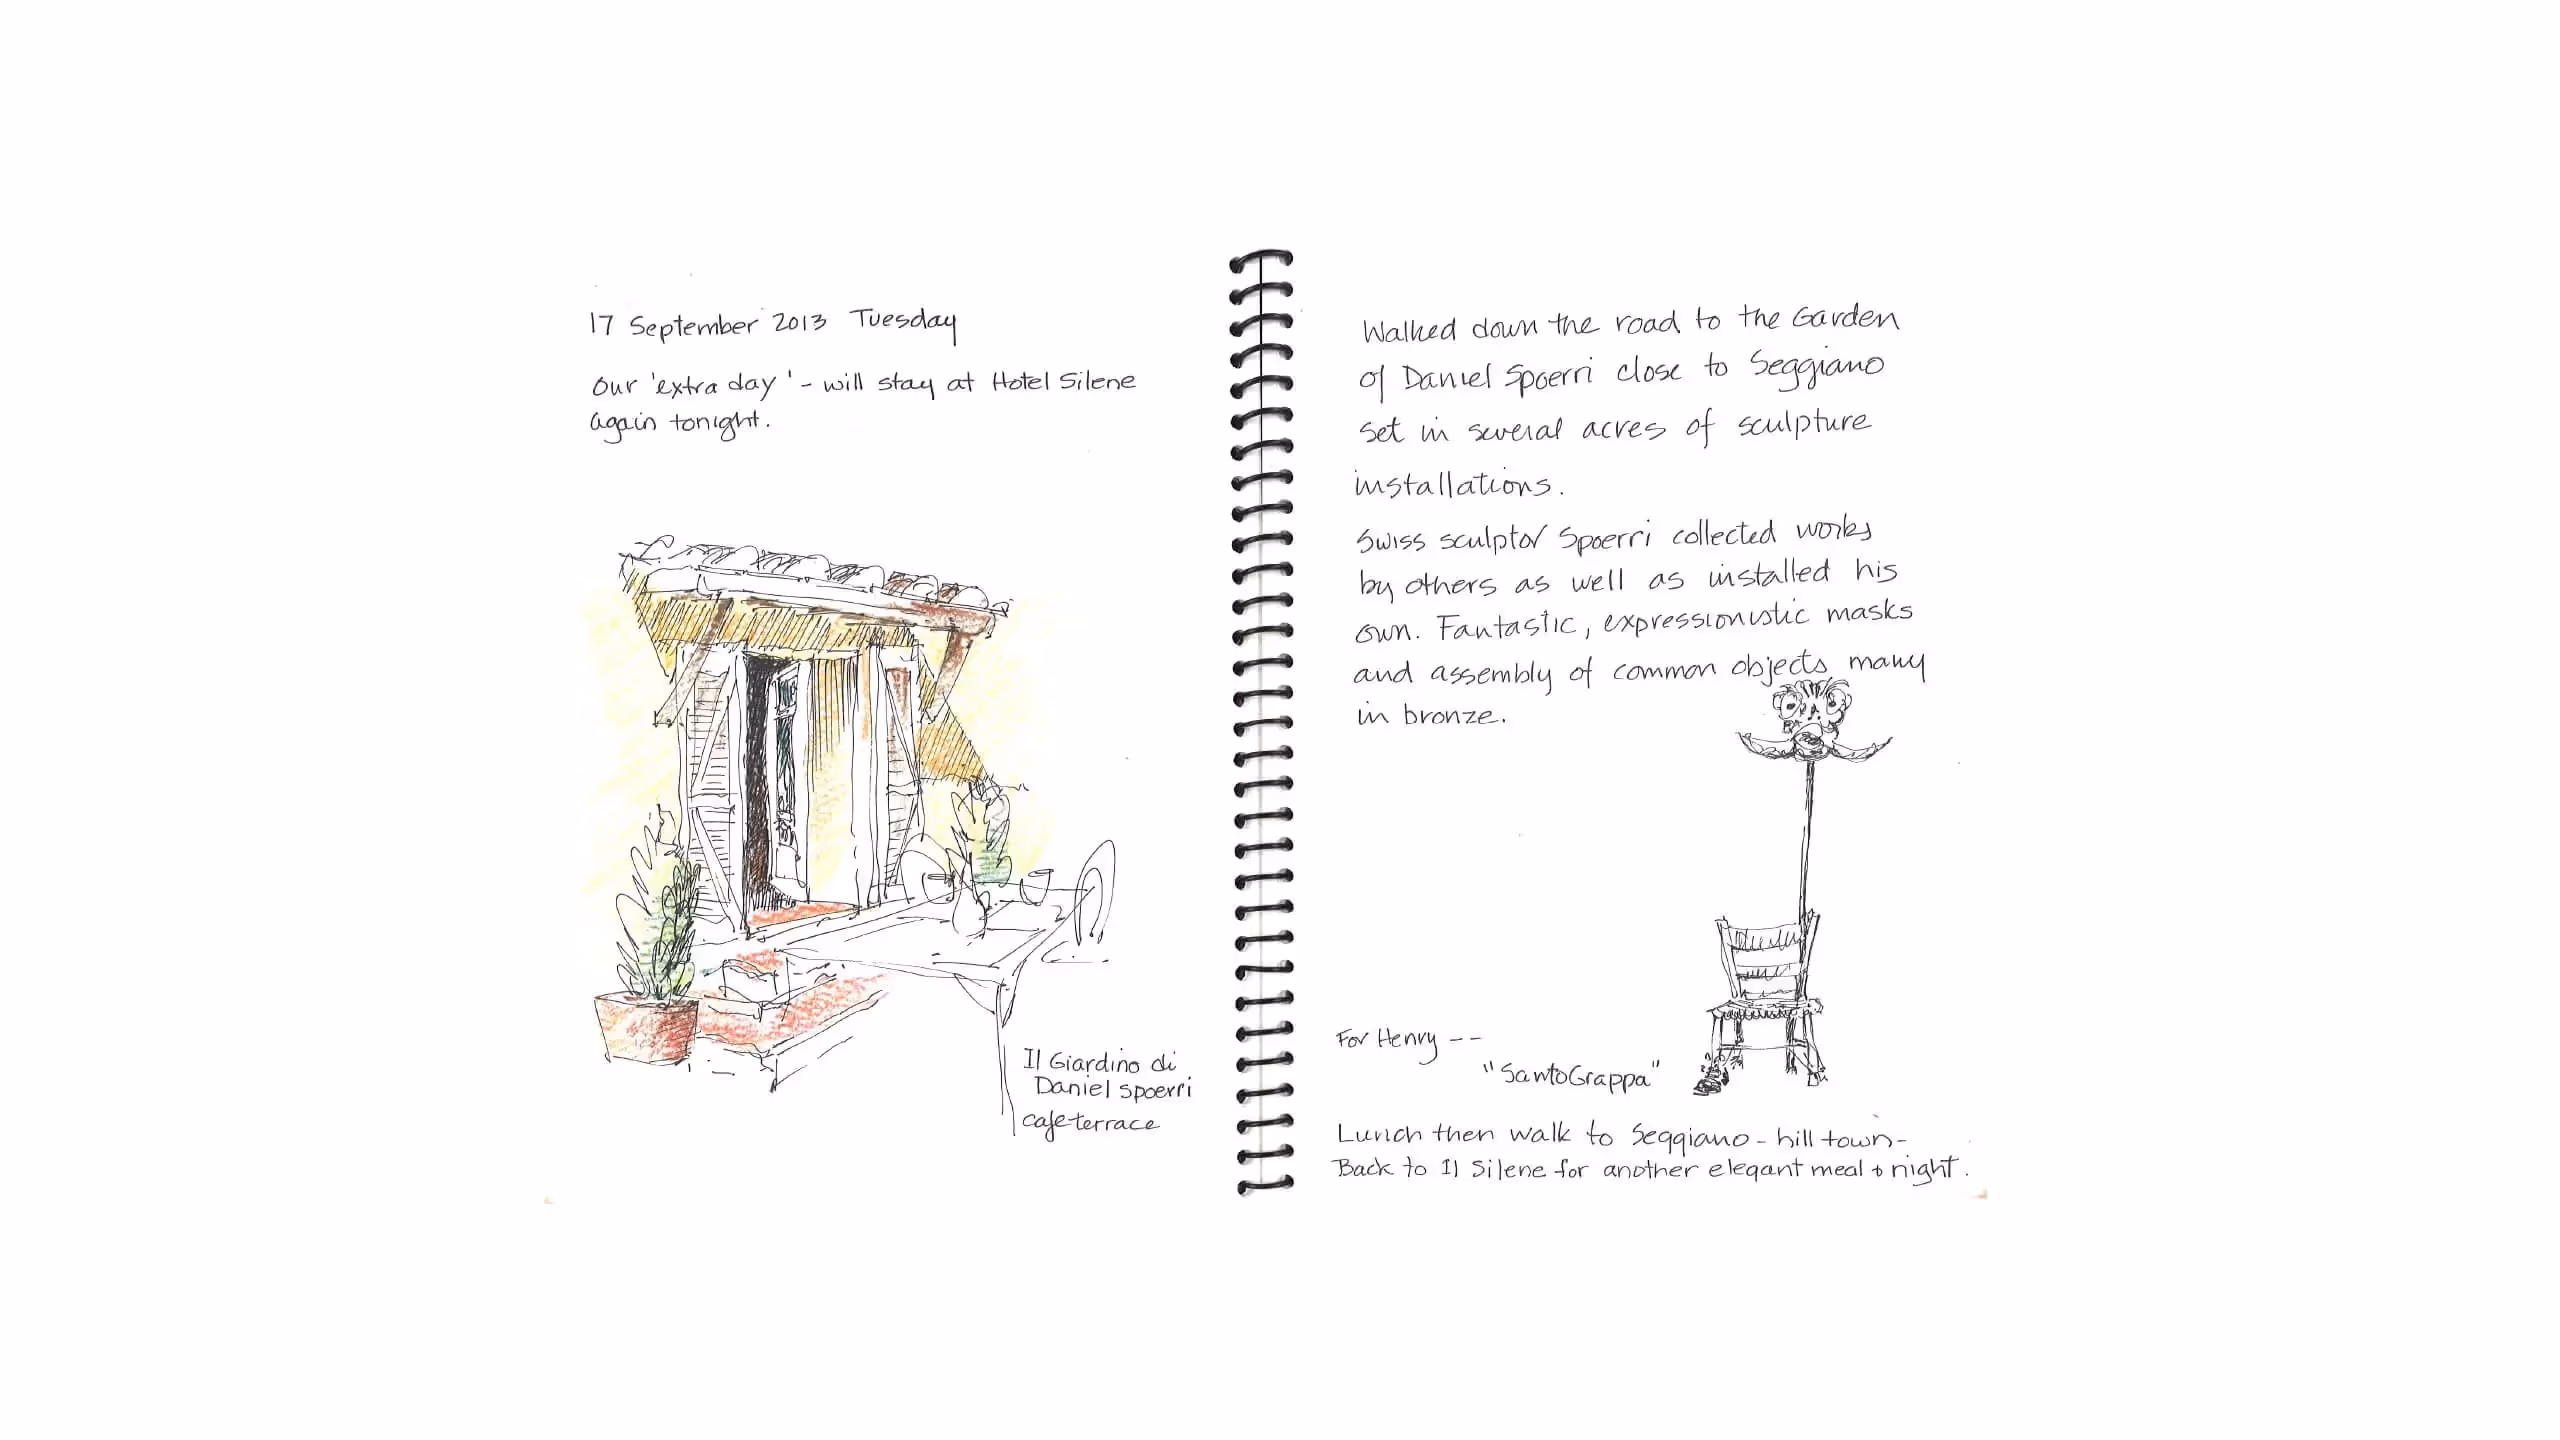 17 September 2013 Tuesday
Our 'extra day' - will stay at Hotel Silene
again tonight.
Il Giardino di
Daniel Spoerri
cafe terrace
Walked down the road to the Garden
of Daniel Spoerri close to Seggiano
set in several acres of sculpture
installations.
Swiss sculptor Spoerri collected works
by others as well as installed his
own. Fantastic, expressionistic masks
and assembly of common objects many
in bronze.
For Henry --
"Santo Grappa"
Lunch then walk to Seggiano - hill town -
Back to Il Silene for another elegant meal + night.